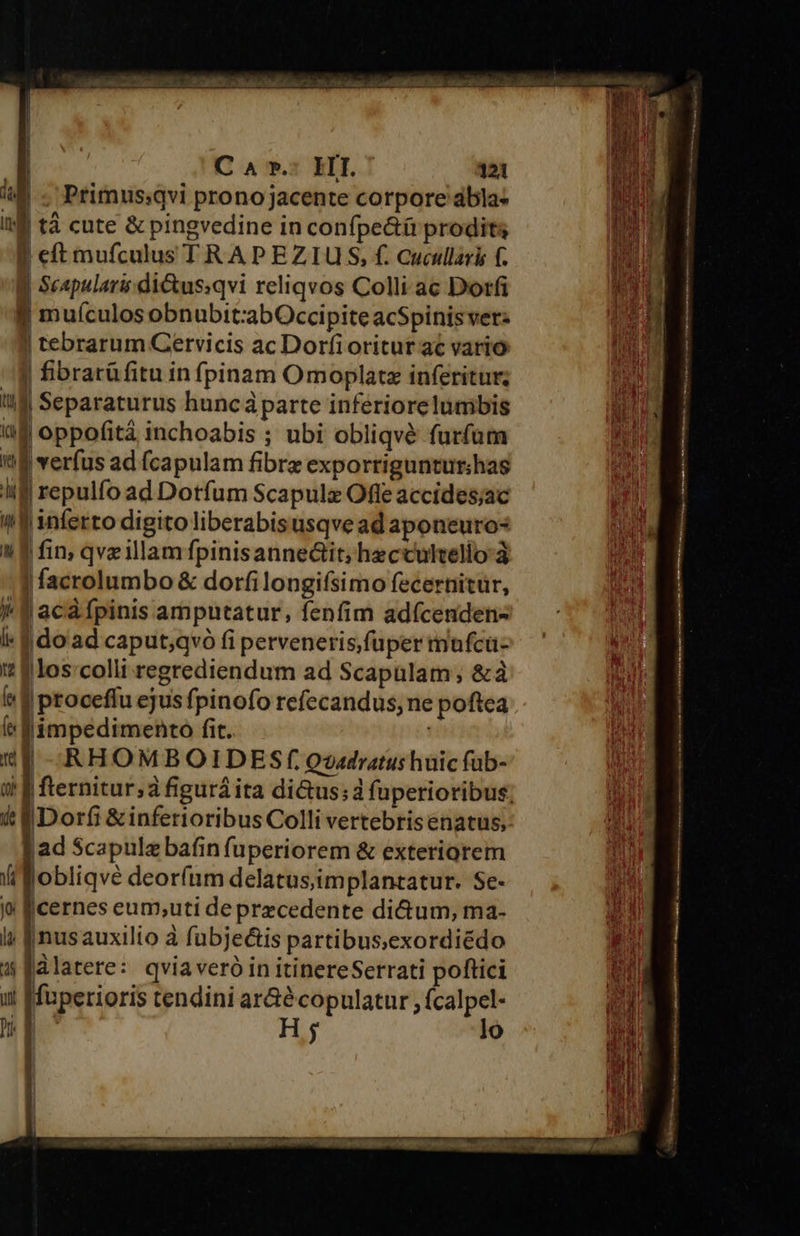 CAP. III. 121
Primus, qvi prono jacente corpore abla-
tâ cute & pingvedine in conſpectū prodit,
eſt muſculus TRAPEZIUS, ſ. Cucullaris ſ.
Scapularis dictus, qvi reliqvos Colli ac Dorſi
muſculos obnubit: ab Occipite ac Spinis ver-
tebrarum Cervicis ac Dorſi oritur ac vario
fibrarū ſitu in ſpinam Omoplatæ inſeritur;
Separaturus hunc à parte inferiore lumbis
oppoſitâ inchoabis ; ubi obliqvè ſurſum
verſus ad ſcapulam fibræ exporriguntur: has
repulſo ad Dorſum Scapulæ Oſſe accides, ac
inſerto digito liberabis usqve ad aponeuro-
ſin, qvæ illam ſpinis annectit, hæc cultello à
ſacrolumbo & dorſi longiſsimo ſecernitur,
ac à ſpinis amputatur, ſenſim adſcenden-
do ad caput, qvò ſi perveneris, ſuper muſcu-
los colli regrediendum ad Scapulam, & à
proceſſu ejus ſpinoſo reſecandus, ne poſtea
impedimento ſit.
RHOMBOIDES ſ. Qvadratus huic ſub-
ſternitur, à figurâ ita dictus; à ſuperioribus
Dorſi & inferioribus Colli vertebris enatus,
ad Scapulæ baſin ſuperiorem & exteriorem
obliqvè deorſum delatus, implantatur. Se-
cernes eum, uti de præcedente dictum, ma-
nus auxilio à ſubjectis partibus, exordiēdo
à latere: qvia verò in itinere Serrati poſtici
ſuperioris tendini arctè copulatur, ſcalpel-
H 5 lo